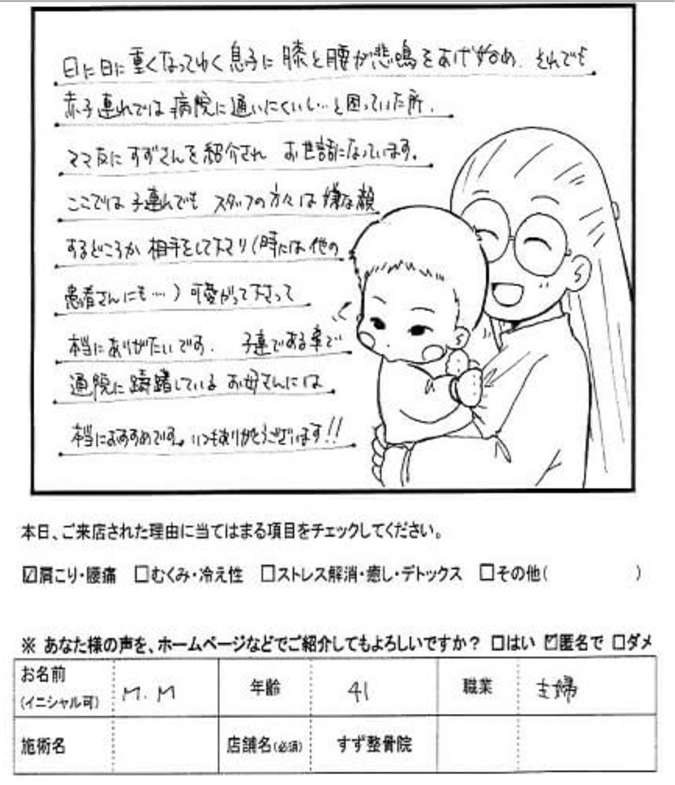 日に日に重くなってゆく息子に膝と腰が悲鳴をあげ始め、それでも
赤子連れでは病院に通いにくいし…と困っていた所、
ママ友にすずさんを紹介され お世話になっています。
ここでは子連れでも スタッフの方々は嫌な顔
するどころか 相手をして下さり(時には他の
患者さんにも…)可愛がって下さって
本当にありがたいです。 子連である事で
通院に躊躇している お母さんには
本当におすすめです。いつもありがとうございます!!
本日、ご来店された理由に当てはまる項目をチェックしてください。
☑肩こり・腰痛 □むくみ・冷え性 □ストレス解消・癒し・デトックス □その他( )
※ あなた様の声を、ホームページなどでご紹介してもよろしいですか? □はい ☑匿名で □ダメ
お名前 (イニシャル可) M.M 年齢 41 職業 主婦
施術名 店舗名(必須) すず整骨院